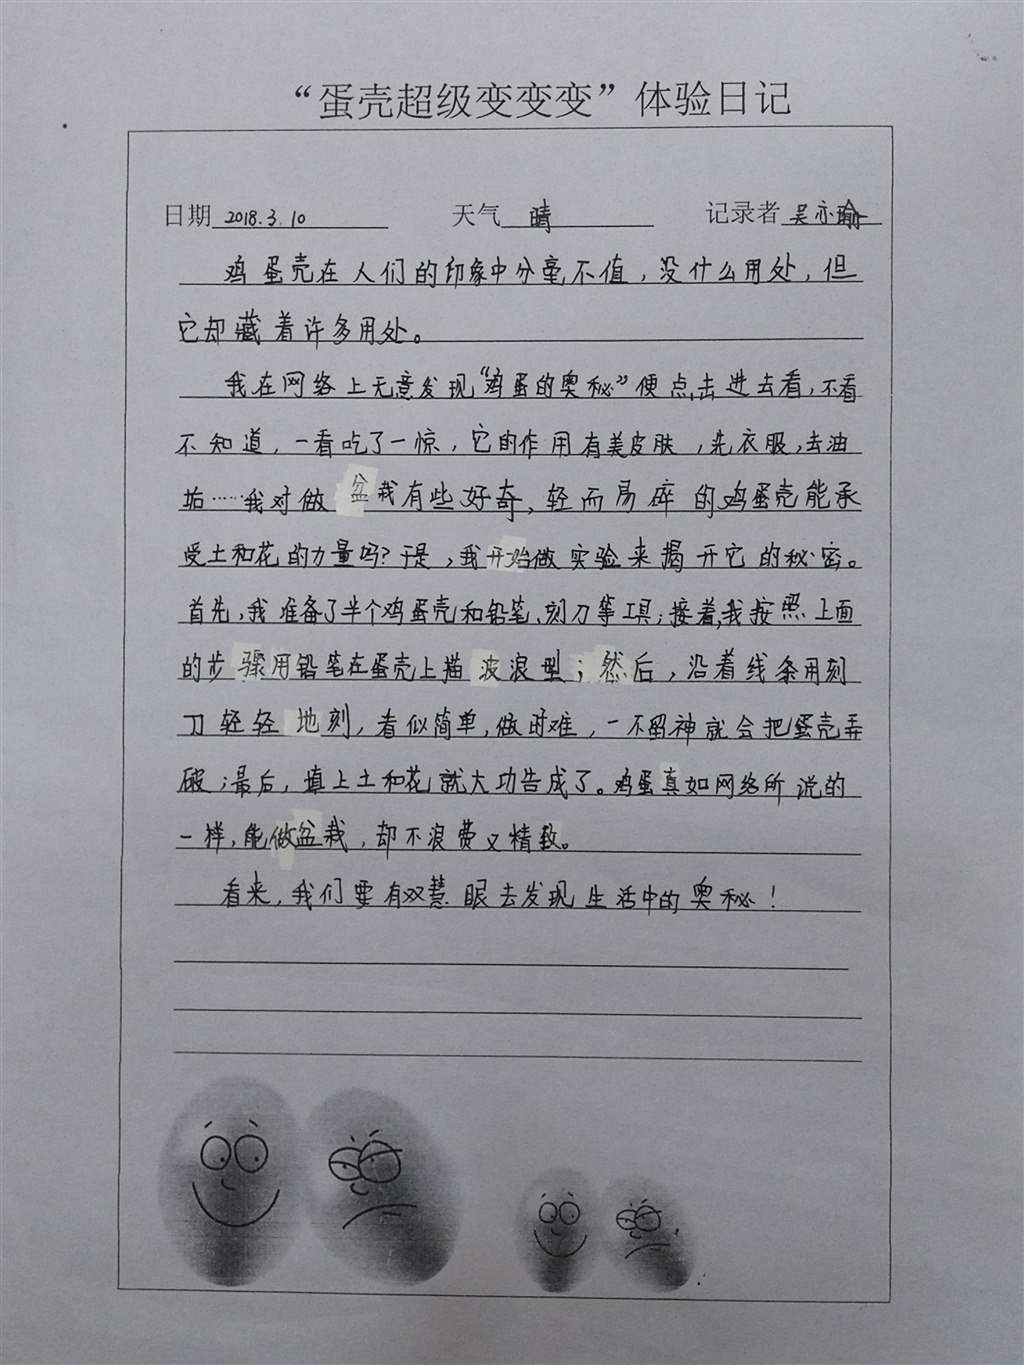 “蛋壳超级变变变”体验日记
日期 2018.3.10 天气 晴 记录者 吴亦瑜
鸡蛋壳在人们的印象中分毫不值，没什么用处，但
它却藏着许多用处。
我在网络上无意发现“鸡蛋的奥秘”便点击进去看，不看
不知道，一看吃了一惊，它的作用有美皮肤，洗衣服，去油
垢……我对做盆栽有些好奇，轻而易碎的鸡蛋壳能承
受土和花的力量吗？于是，我开始做实验来揭开它的秘密。
首先，我准备了半个鸡蛋壳和铅笔、刻刀等工具；接着，我按照上面
的步骤用铅笔在蛋壳上描波浪型；然后，沿着线条用刻
刀轻轻地刻，看似简单，做时难，一不留神就会把蛋壳弄
破；最后，填上土和花就大功告成了。鸡蛋真如网络所说的
一样，能做盆栽，却不浪费又精致。
看来，我们要有双慧眼去发现生活中的奥秘！